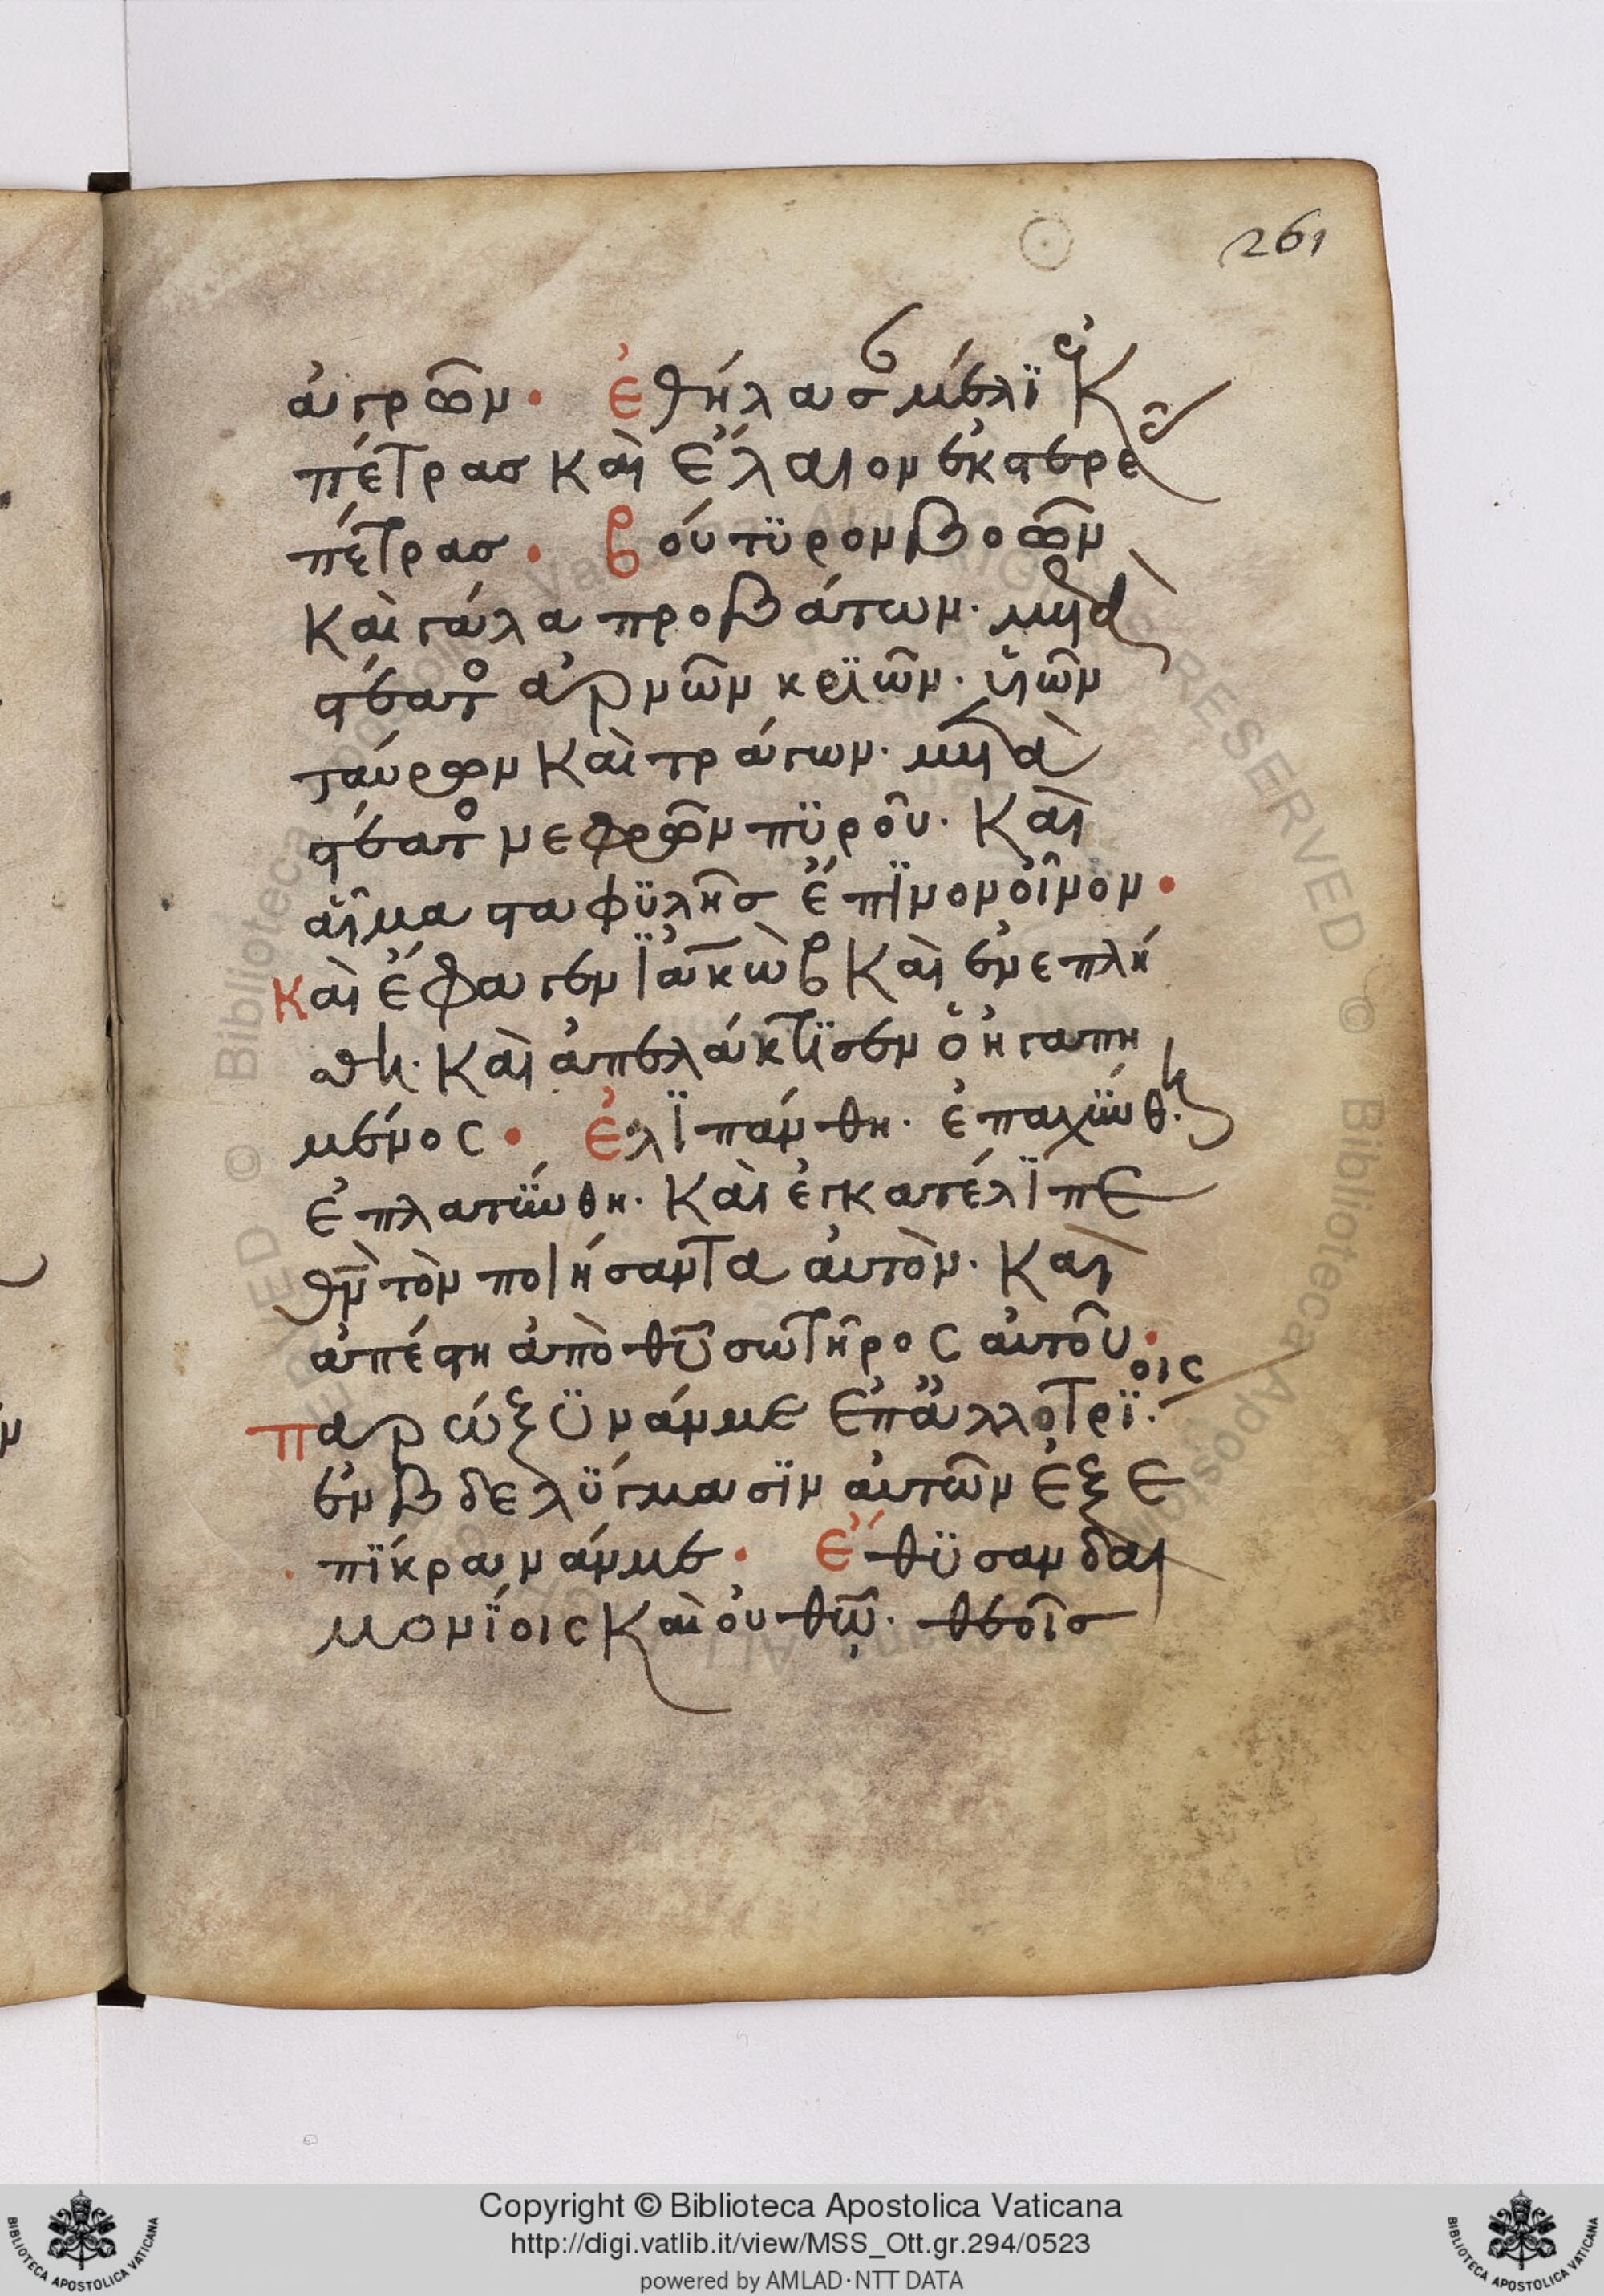 261
ἀγρῶν· ἐθήλασαν μέλϊ ἐκ
πέτρας καὶ ἔλαιον ἐκ στερεᾶς
πέτρας· βούτϋρον βοῶν
καὶ γάλα προβάτων· μετὰ
στέατο ἀρνῶν κρϊῶν· ὑιῶν
ταύρων καὶ τράγων· μετὰ
στέατο νεφρῶν πϋροῦ· καὶ
αἷμα σταφϋλῆς ἔπϊνον οἶνον·
καὶ ἔφαγεν ϊακὼβ καὶ ἐνεπλή
σθη· καὶ ἀπελάκτϊσεν ὁ ἠγαπη
μένος· ἐλϊπάνθη· ἐπαχϋνθη
ἐπλατϋνθη· καὶ ἐγκατέλϊπε
θν τὸν ποιήσαντα αὐτὸν· καὶ
ἀπέστη ἀπὸ θυ σωτῆρος αὐτοῦ·
παρώξϋνάν με ἐπ' ἀλλοτρϊοις·
ἐν βδελϋγμασϊν αὐτῶν ἐξε
πϊκρανάν με· ἔθϋσαν δαι
μονϊοις καὶ οὐ θω· θεοῖς
Copyright © Biblioteca Apostolica Vaticana
http://digi.vatlib.it/view/MSS_Ott.gr.294/0523
powered by AMLAD·NTT DATA
BIBLIOTECA APOSTOLICA VATICANA
BIBLIOTECA APOSTOLICA VATICANA